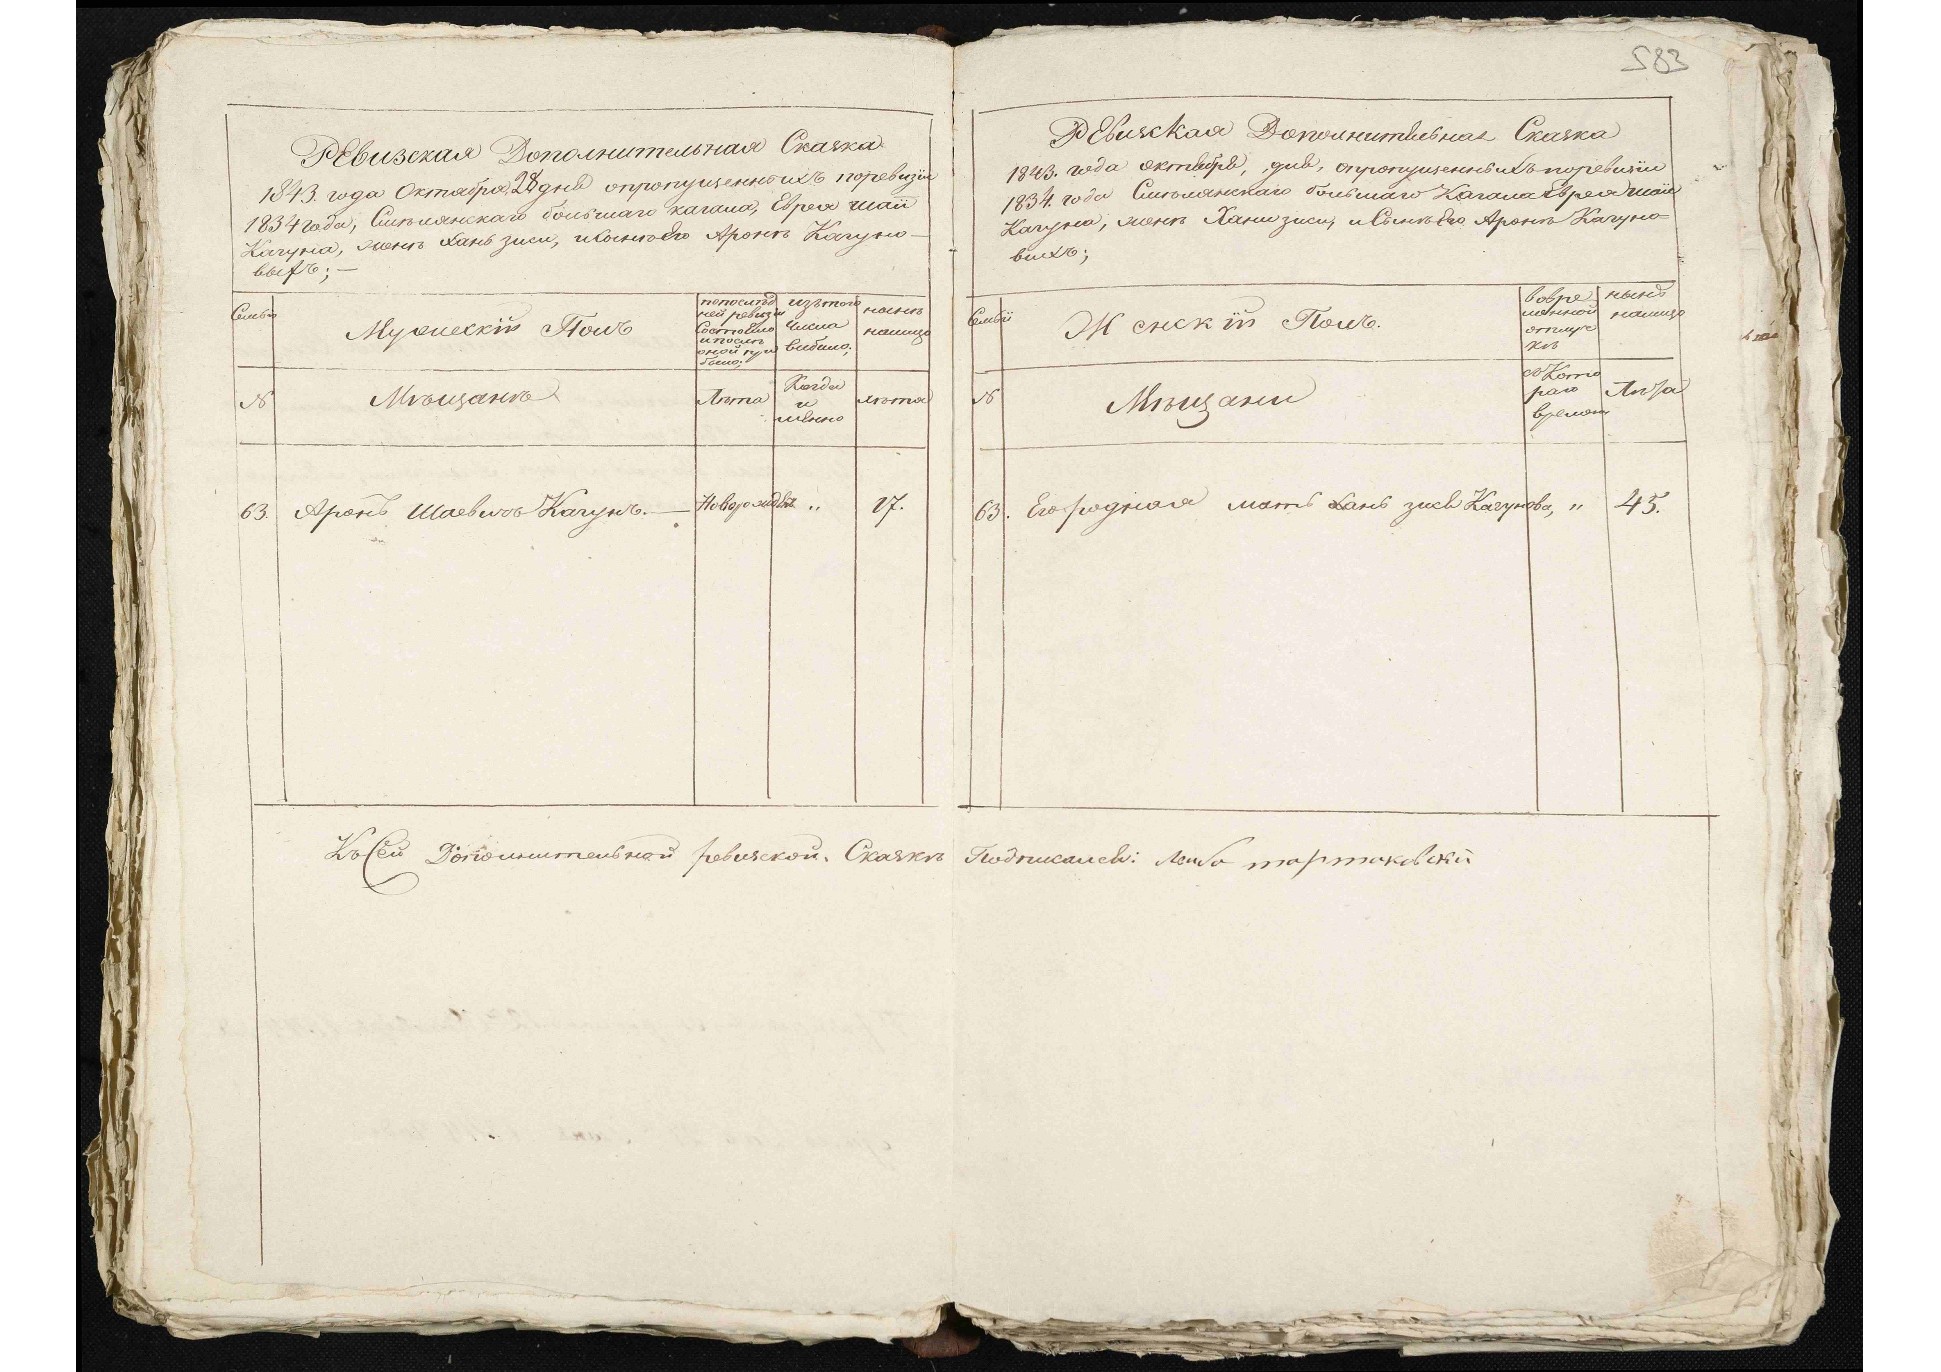 583
Ревизская Дополнительная Сказка
1843. года Октября 28 дня опропущенныхъ поревизіи
1834 года, Смѣлянскаго большаго кагала, Еврея шаи
Кагуна, женѣ ханѣ зиси, исынѣ Его Аронѣ Кагуно-
выхъ; —
Семьи
Мужескій Полъ
попослѣд
ней ревизіи
Состояло
ипослѣ
оной
было;
изътого
Числа
выбыло;
нынѣ
налицо
№
Мѣщанѣ
Лѣта
Когда
и
менно
лѣта
63. Аронъ Шаевъ Кагунъ. — Новорожден „ 17.
Ревизская Дополнительная Сказка
1843. года октября, дня, опропущенныхъ поревизіи
1834. года Смѣлянскаго большаго Кагала Еврея шаи
Кагуна, женѣ Хани зиси, иСынѣ Его Аронѣ Кагуно-
выхъ;
Семьи
Женскій Полъ.
вовре
менной
отлуч
кѣ
нынѣ
налицо
№
Мѣщани
съКото
раго
времени
Лѣта
63. Его родная мать хань зися Кагунова, „ 45.
Къ Сей Дополнительной ревизской. Сказкѣ Подписался: Лейба тартаковскій